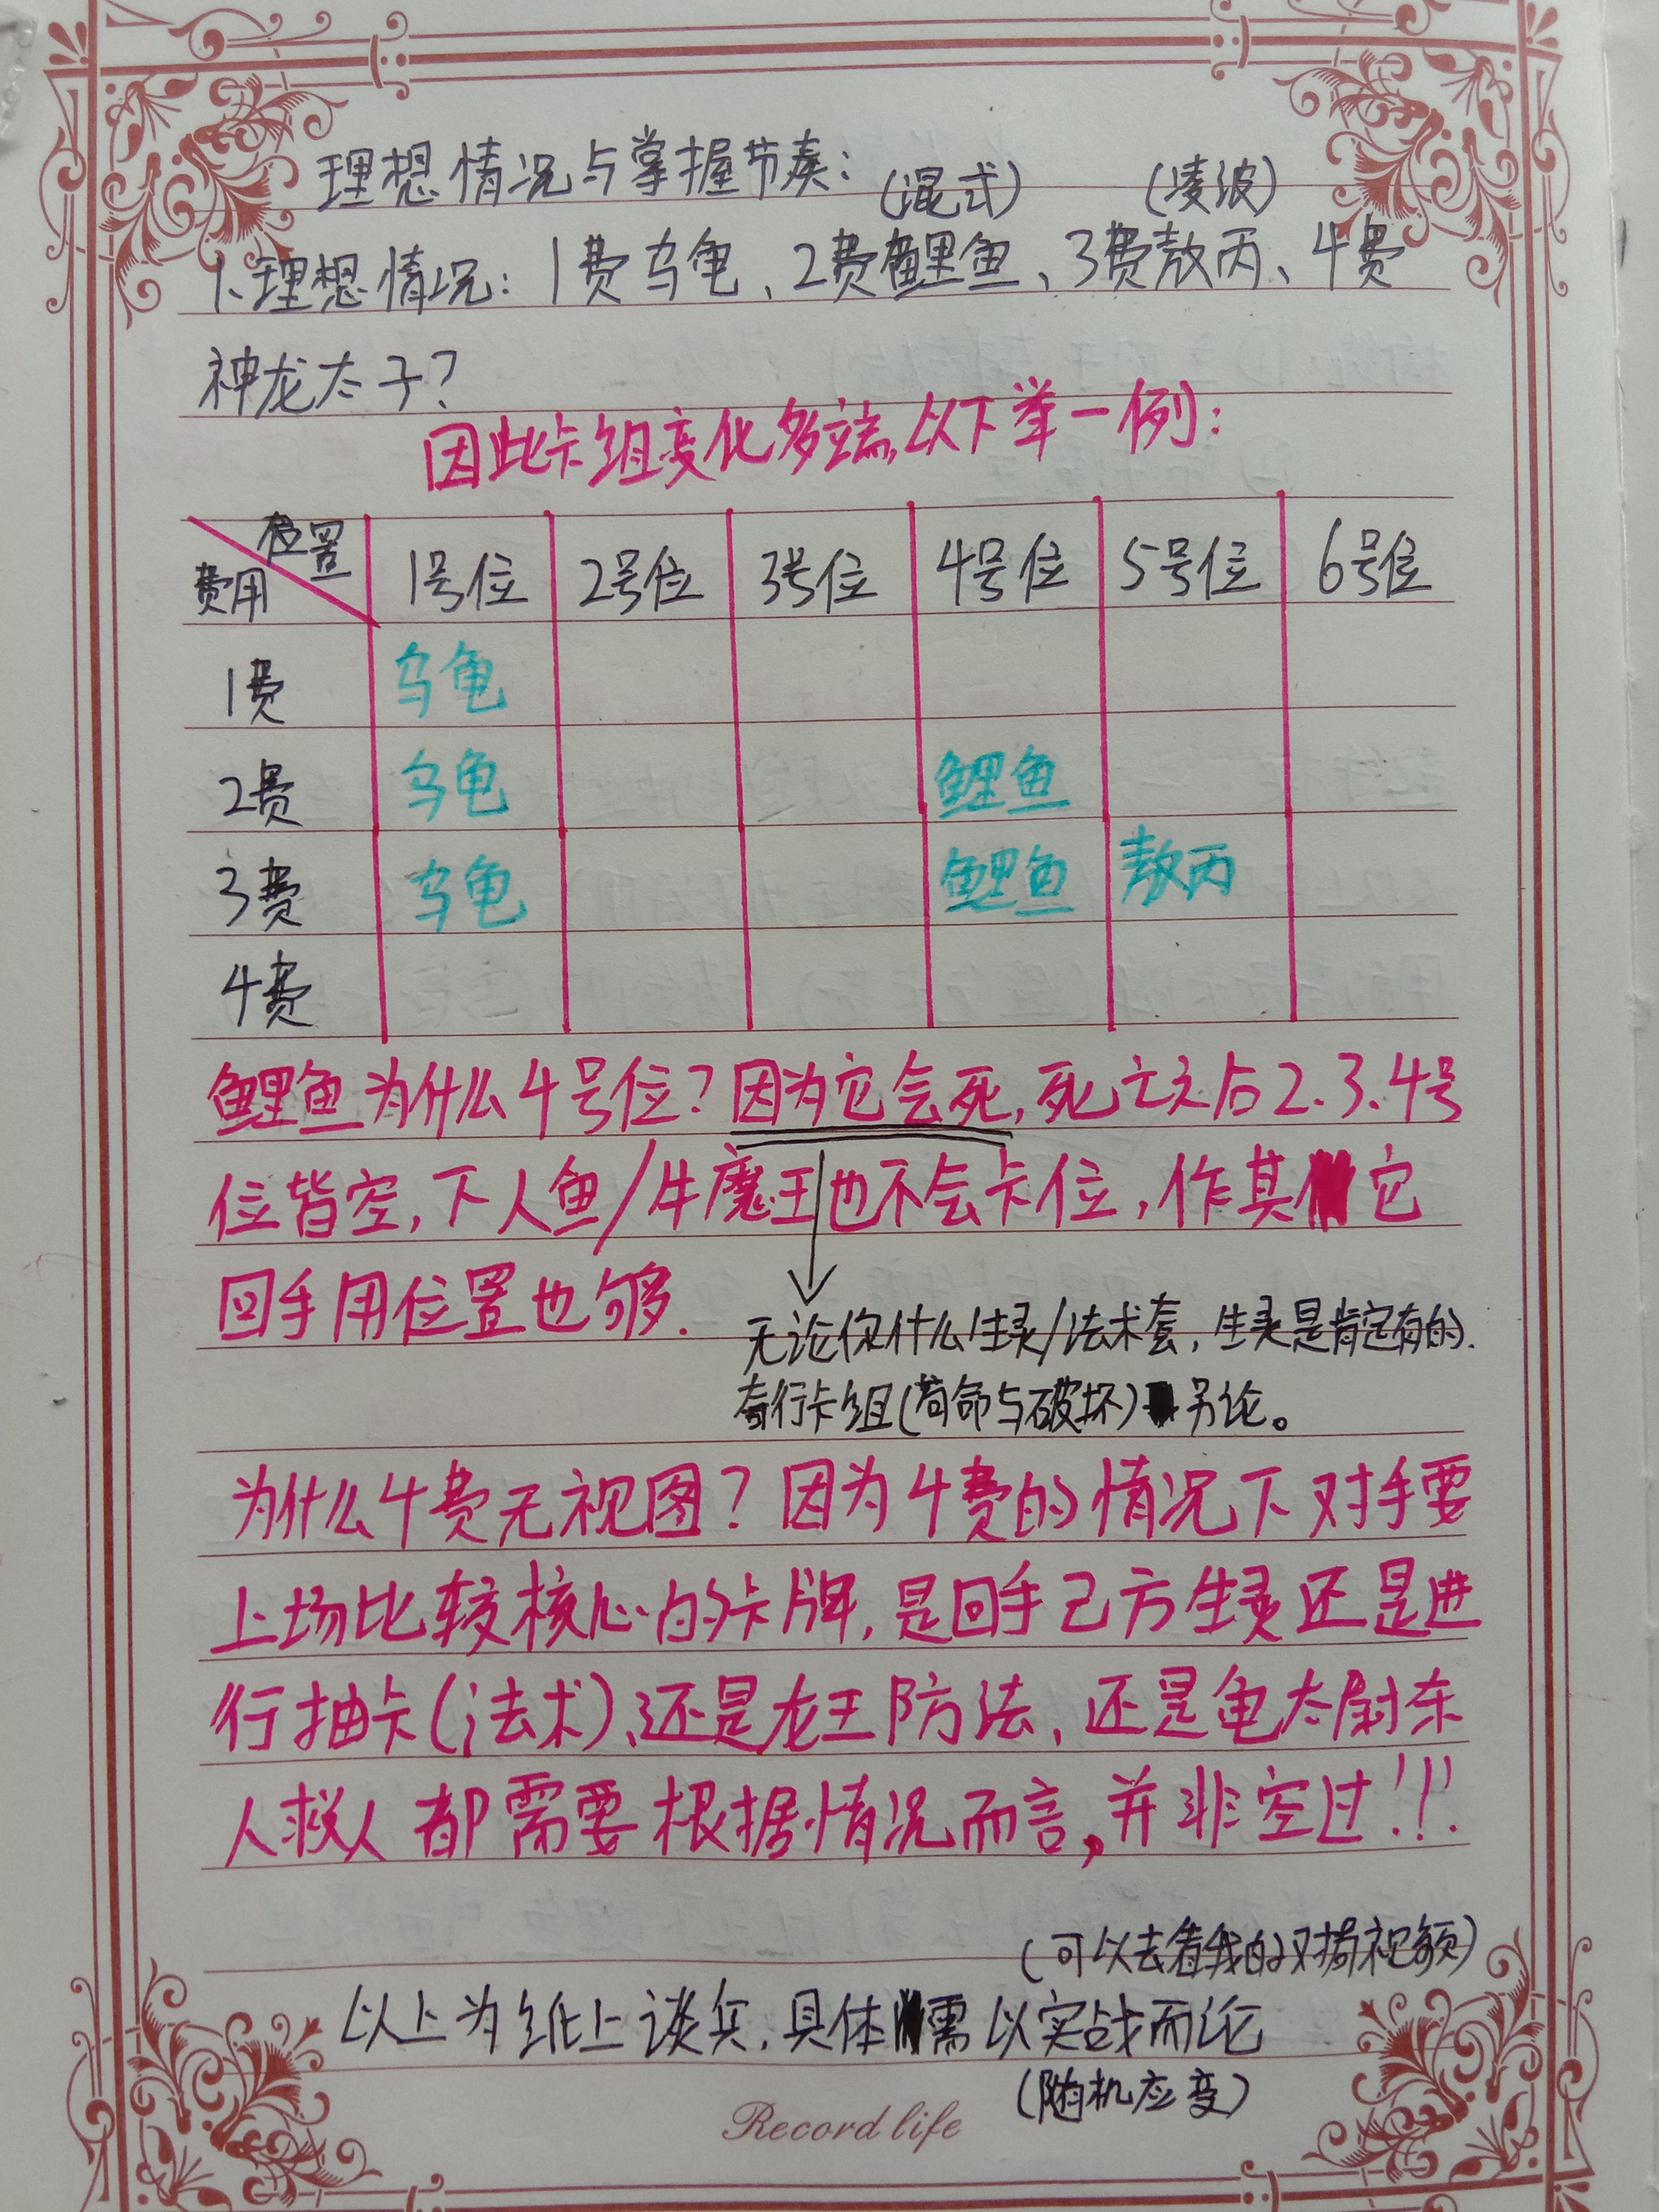 理想情况与掌握节奏：
(混式) (凌波)
1、理想情况：1费乌龟、2费鲤鱼、3费敖丙、4费
神龙太子？
因此卡组变化多端，以下举一例：
位置
费用 1号位 2号位 3号位 4号位 5号位 6号位
1费 乌龟
2费 乌龟 鲤鱼
3费 乌龟 鲤鱼 敖丙
4费
鲤鱼为什么4号位？因为它会死，死亡之后2.3.4号
位皆空，下人鱼/牛魔王也不会卡位，作其它
回手用位置也够.
无论你什么生灵/法术套，生灵是肯定有的.
奇行卡组(苟命与破坏)另论。
为什么4费无视图？因为4费的情况下对手要
上场比较核心的卡牌，是回手己方生灵还是进
行抽卡(法术)、还是龙王防法，还是龟太尉东
人救人都需要根据情况而言，并非空过！！！
(可以去看我的对捅视频)
以上为纸上谈兵，具体需以实战而论
(随机应变)
Record life